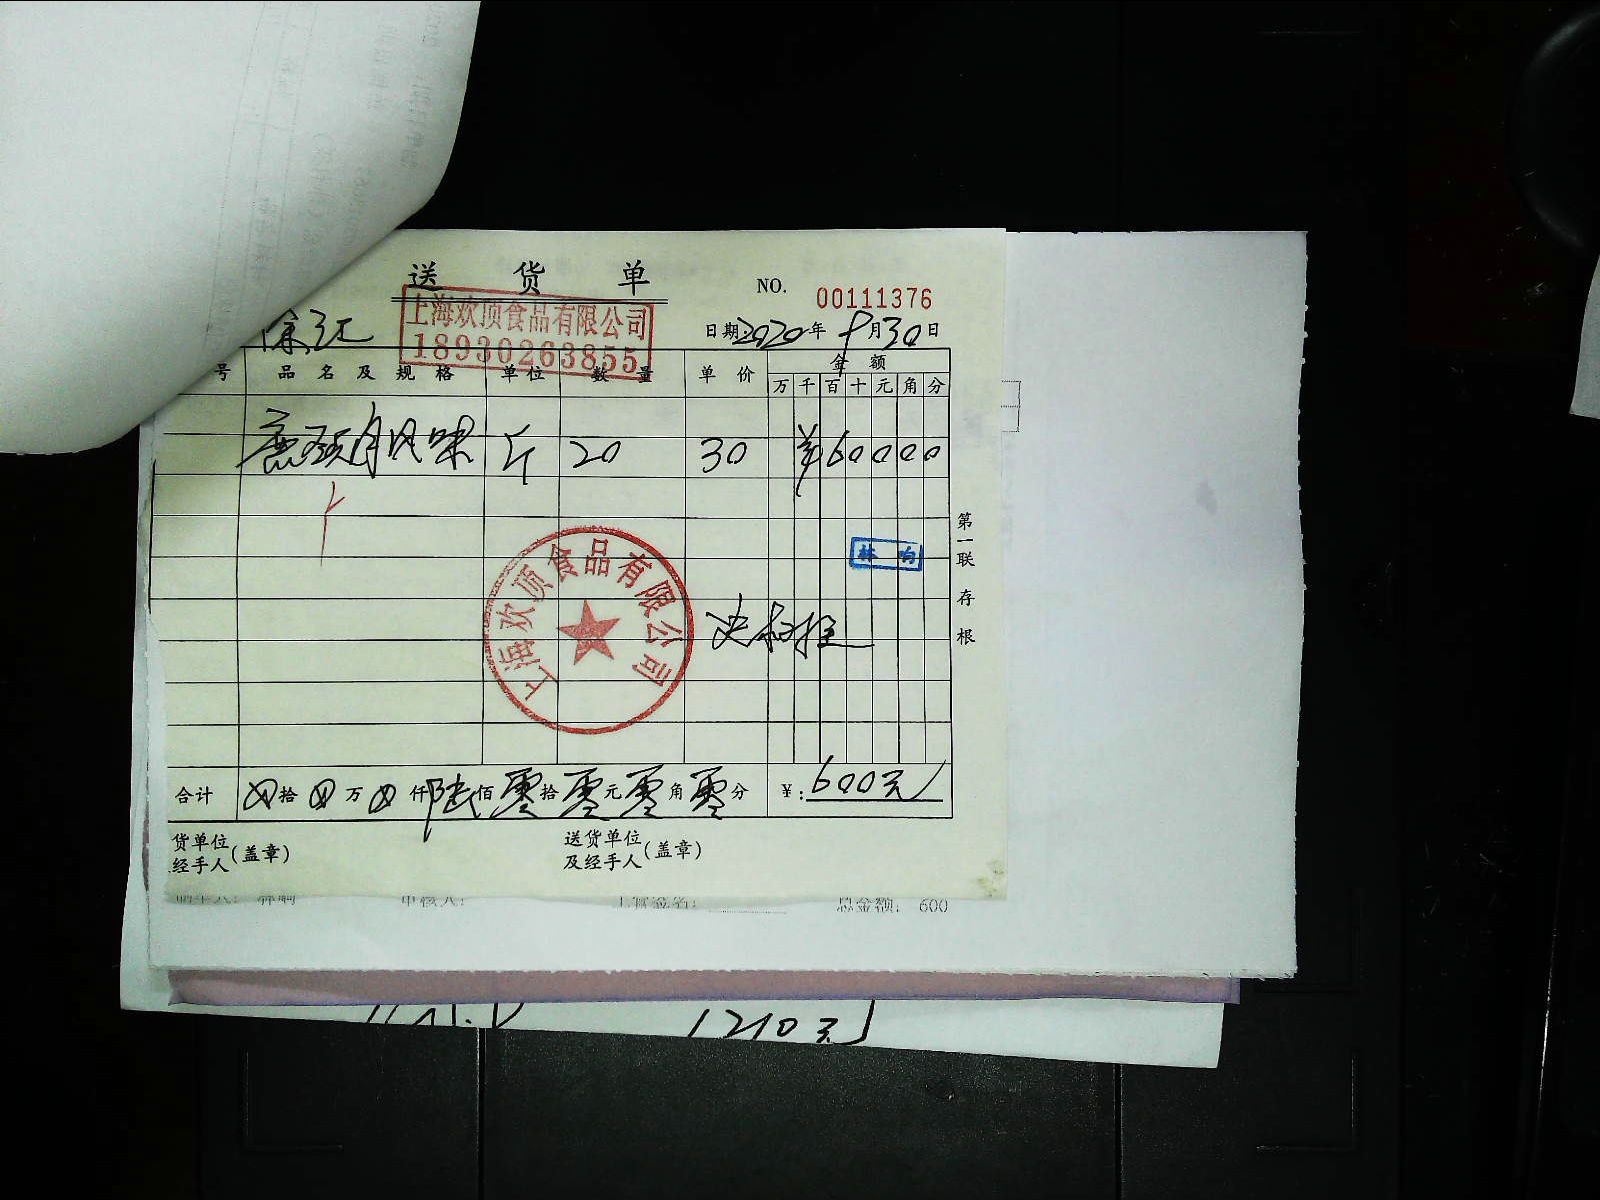 送 货 单
NO. 00111376
上海欢顶食品有限公司
18930263855
徐汇
日期:2020年9月30日
号 品名及规格 单位 数量 单价 金额
万 千 百 十 元 角 分
斤 20 30 ¥60000
第一联 存根
林响
上海欢顶食品有限公司
合计 拾 万 仟 陆 佰 零 拾 零 元 零 角 零 分 ¥:600元
货单位
经手人(盖章)
送货单位
及经手人(盖章)
审核人: 主管签名: 总金额: 600
1210元